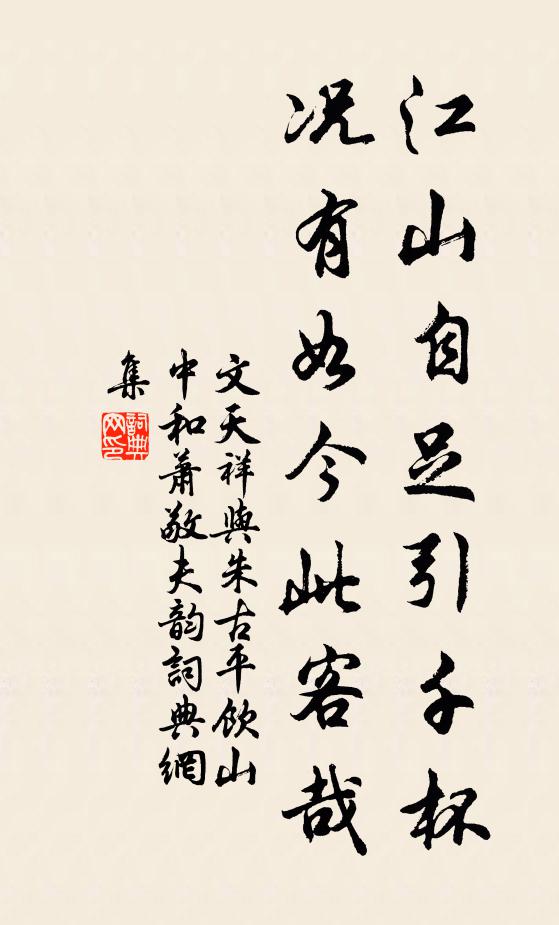 江山自足引千杯
况有如今此客哉
文天祥與朱古平飲山
中和蕭敬夫韵詞典網
集
詞典
网印